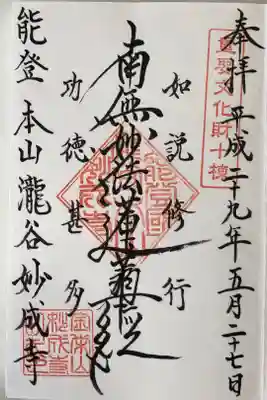 奉拝 平成二十九年五月二十七日
重要文化財十棟
如説修行
南無妙法蓮華経
功徳甚多
能登 本山 瀧谷妙成寺